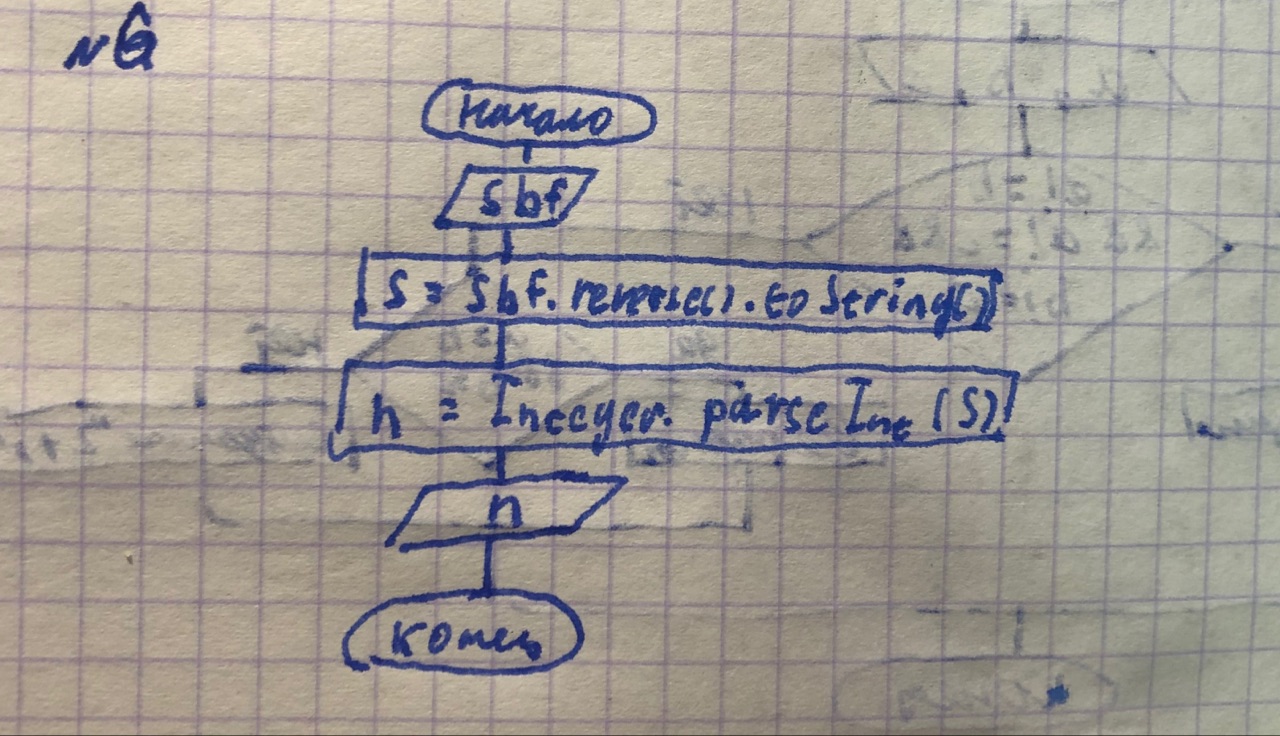 №6
начало
Sbf
S = Sbf.reverse().toString()
n = Integer.parseInt(S)
n
конец